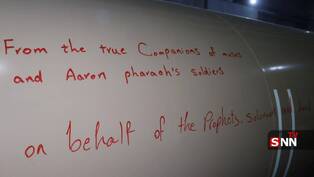 From the true Companions of moses
and Aaron pharaoh's soldiers
on behalf of the Prophets. Solomon
SNN
TV